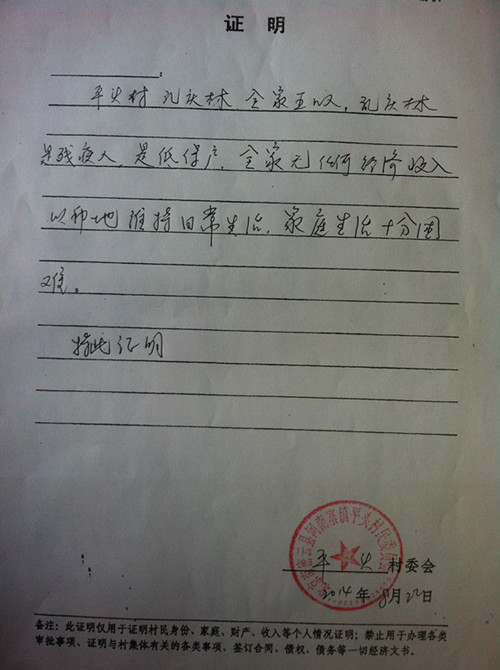 证 明
:
平头村 孔庆林 全家五口, 孔庆林
是残疾人, 是低保户, 全家无任何经济收入
以种地维持日常生活, 家庭生活十分困
难。
特此证明
云县河南寨镇平头村民委员会
平 头 村委会
2014年 8月22日
备注: 此证明仅用于证明村民身份、家庭、财产、收入等个人情况证明; 禁止用于办理各类
审批事项、证明与村集体有关的各类事项、签订合同、债权、债务等一切经济文书。